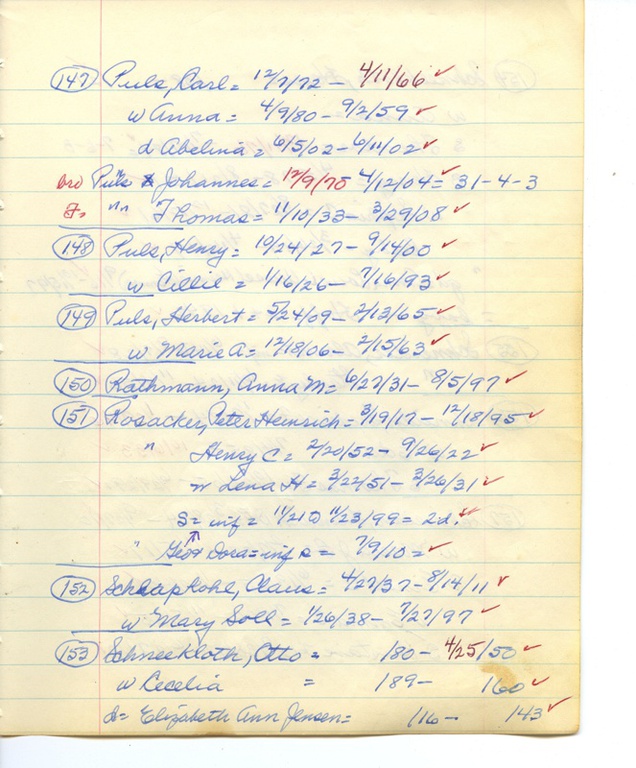 147 Puls, Carl = 12/7/72 - 4/11/66 ✓
w Anna = 4/9/80 - 9/2/59 ✓
d Abelina = 6/5/02 - 6/11/02 ✓
bro Puls Johannes = 12/9/70 4/12/04 = 31-4-3
F= "" Thomas = 11/10/33 - 3/29/08 ✓
148 Puls, Henry = 10/24/27 - 9/14/00 ✓
w Cillie = 1/16/26 - 7/16/93 ✓
149 Puls, Herbert = 5/24/09 - 2/13/65 ✓
w Marie A = 12/18/06 - 2/15/63 ✓
150 Rathmann, Anna M = 6/27/31 - 8/5/97 ✓
151 Rosacker, Peter Heinrich = 3/19/17 - 12/18/95 ✓
" Henry C = 2/20/52 - 9/26/22 ✓
w Lena H = 3/22/51 - 3/26/31 ✓
S = inf = 11/21 to 11/23/99 = 2d. ✓
" Geo & Dora = inf s = 7/9/10 = ✓
152 Schlapkohl, Claus = 4/27/37 - 8/14/11 ✓
w Mary Soll = 1/26/38 - 7/27/97 ✓
153 Schneekloth, Otto = 180 - 4/25/50 ✓
w Cecelia = 189 - 160 ✓
d = Elizabeth Ann Jensen = 116 - 143 ✓